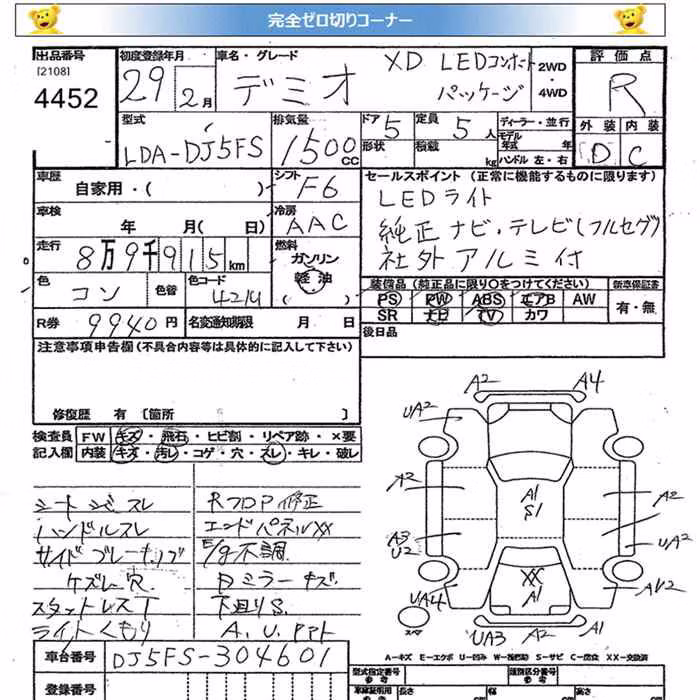 完全ゼロ切りコーナー
出品番号
[2108]
4452
初度登録年月
29年2月
車名・グレード
デミオ
XD LEDコンホート
パッケージ
2WD
・
4WD
評価点
R
外装 内装
D C
型式
LDA-DJ5FS
排気量
1500cc
ドア 5
形状
定員 5人
積載 kg
ディーラー・並行
モデル年式 年
ハンドル 左・右
車歴
自家用・( )
シフト
F6
セールスポイント(正常に機能するものに限ります)
LEDライト
純正ナビ・テレビ(フルセグ)
社外アルミ付
車検
年 月( 日)
冷房
AAC
走行
8万9千915km
燃料
ガソリン
軽油
( )
色
コン
色替
色コード
42M
装備品(純正品に限り○をつけてください)
PS PW ABS エアB AW
SR ナビ TV カワ
新車保証書
有・無
R券 9940円
名変通知期限 月 日
後日品
注意事項申告欄(不具合内容等は具体的に記入して下さい)
修復歴 有[箇所 ]
検査員
記入欄
FW キズ・飛石・ヒビ割・リペア跡・×要
内装 キズ・汚レ・コゲ・穴・スレ・キレ・破レ
シートシミスレ
ハンドルスレ
サイドブレーキノブ
ケズレ穴
スタットレスT
ライトくもり
RフロP修正
エンドパネルXX
E/g不調
Rミラーキズ
下廻りS.
A.U.
A2
A4
UA2
A2
A3
U2
UA4
A1
S1
XX
A1
A2
UA2
AU2
スペア
UA3
A2
A1
A=キズ E=エクボ U=凹み W=(波凹み) S=サビ C=腐食 XX=交換済
車台番号
DJ5FS-304601
登録番号
型式指定番号
参考
類別区分番号
参考
車検証明用
参考
長さ
cm
幅
cm
高さ
cm